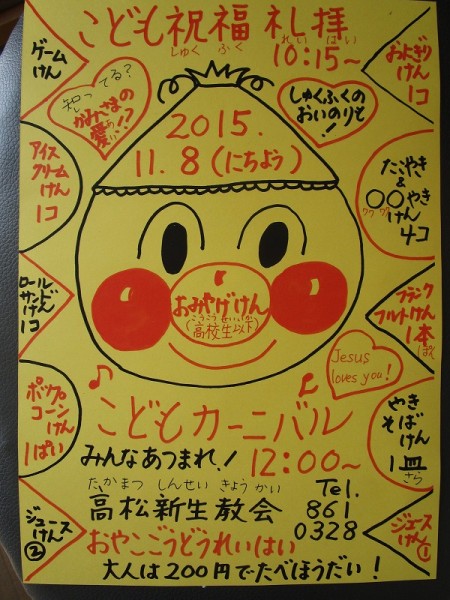 こども祝福礼拝
しゅく ふく れい はい
10:15〜
ゲーム
けん
おにぎり
けん
1コ
知ってる?
かみさまの
愛!?
しゅくふくの
おいのりも!
2015.
11.8(にちよう)
アイス
クリーム
けん
1コ
たこやき
&
〇〇やき
ワク ワク
けん
4コ
ロール
サンドけん
1コ
おみやげけん
こうこうせいいか
(高校生以下)
フランク
フルトけん
1本
ぽん
Jesus
loves you!
ポップ
コーン
けん
1ぱい
こどもカーニバル
やき
そばけん
1皿
さら
みんなあつまれ!
12:00〜
たかまつ しんせい きょうかい
高松新生教会
Tel.
861
0328
ジュース
けん
②
ジュース
けん①
おやこごうどうれいはい
大人は200円でたべほうだい!